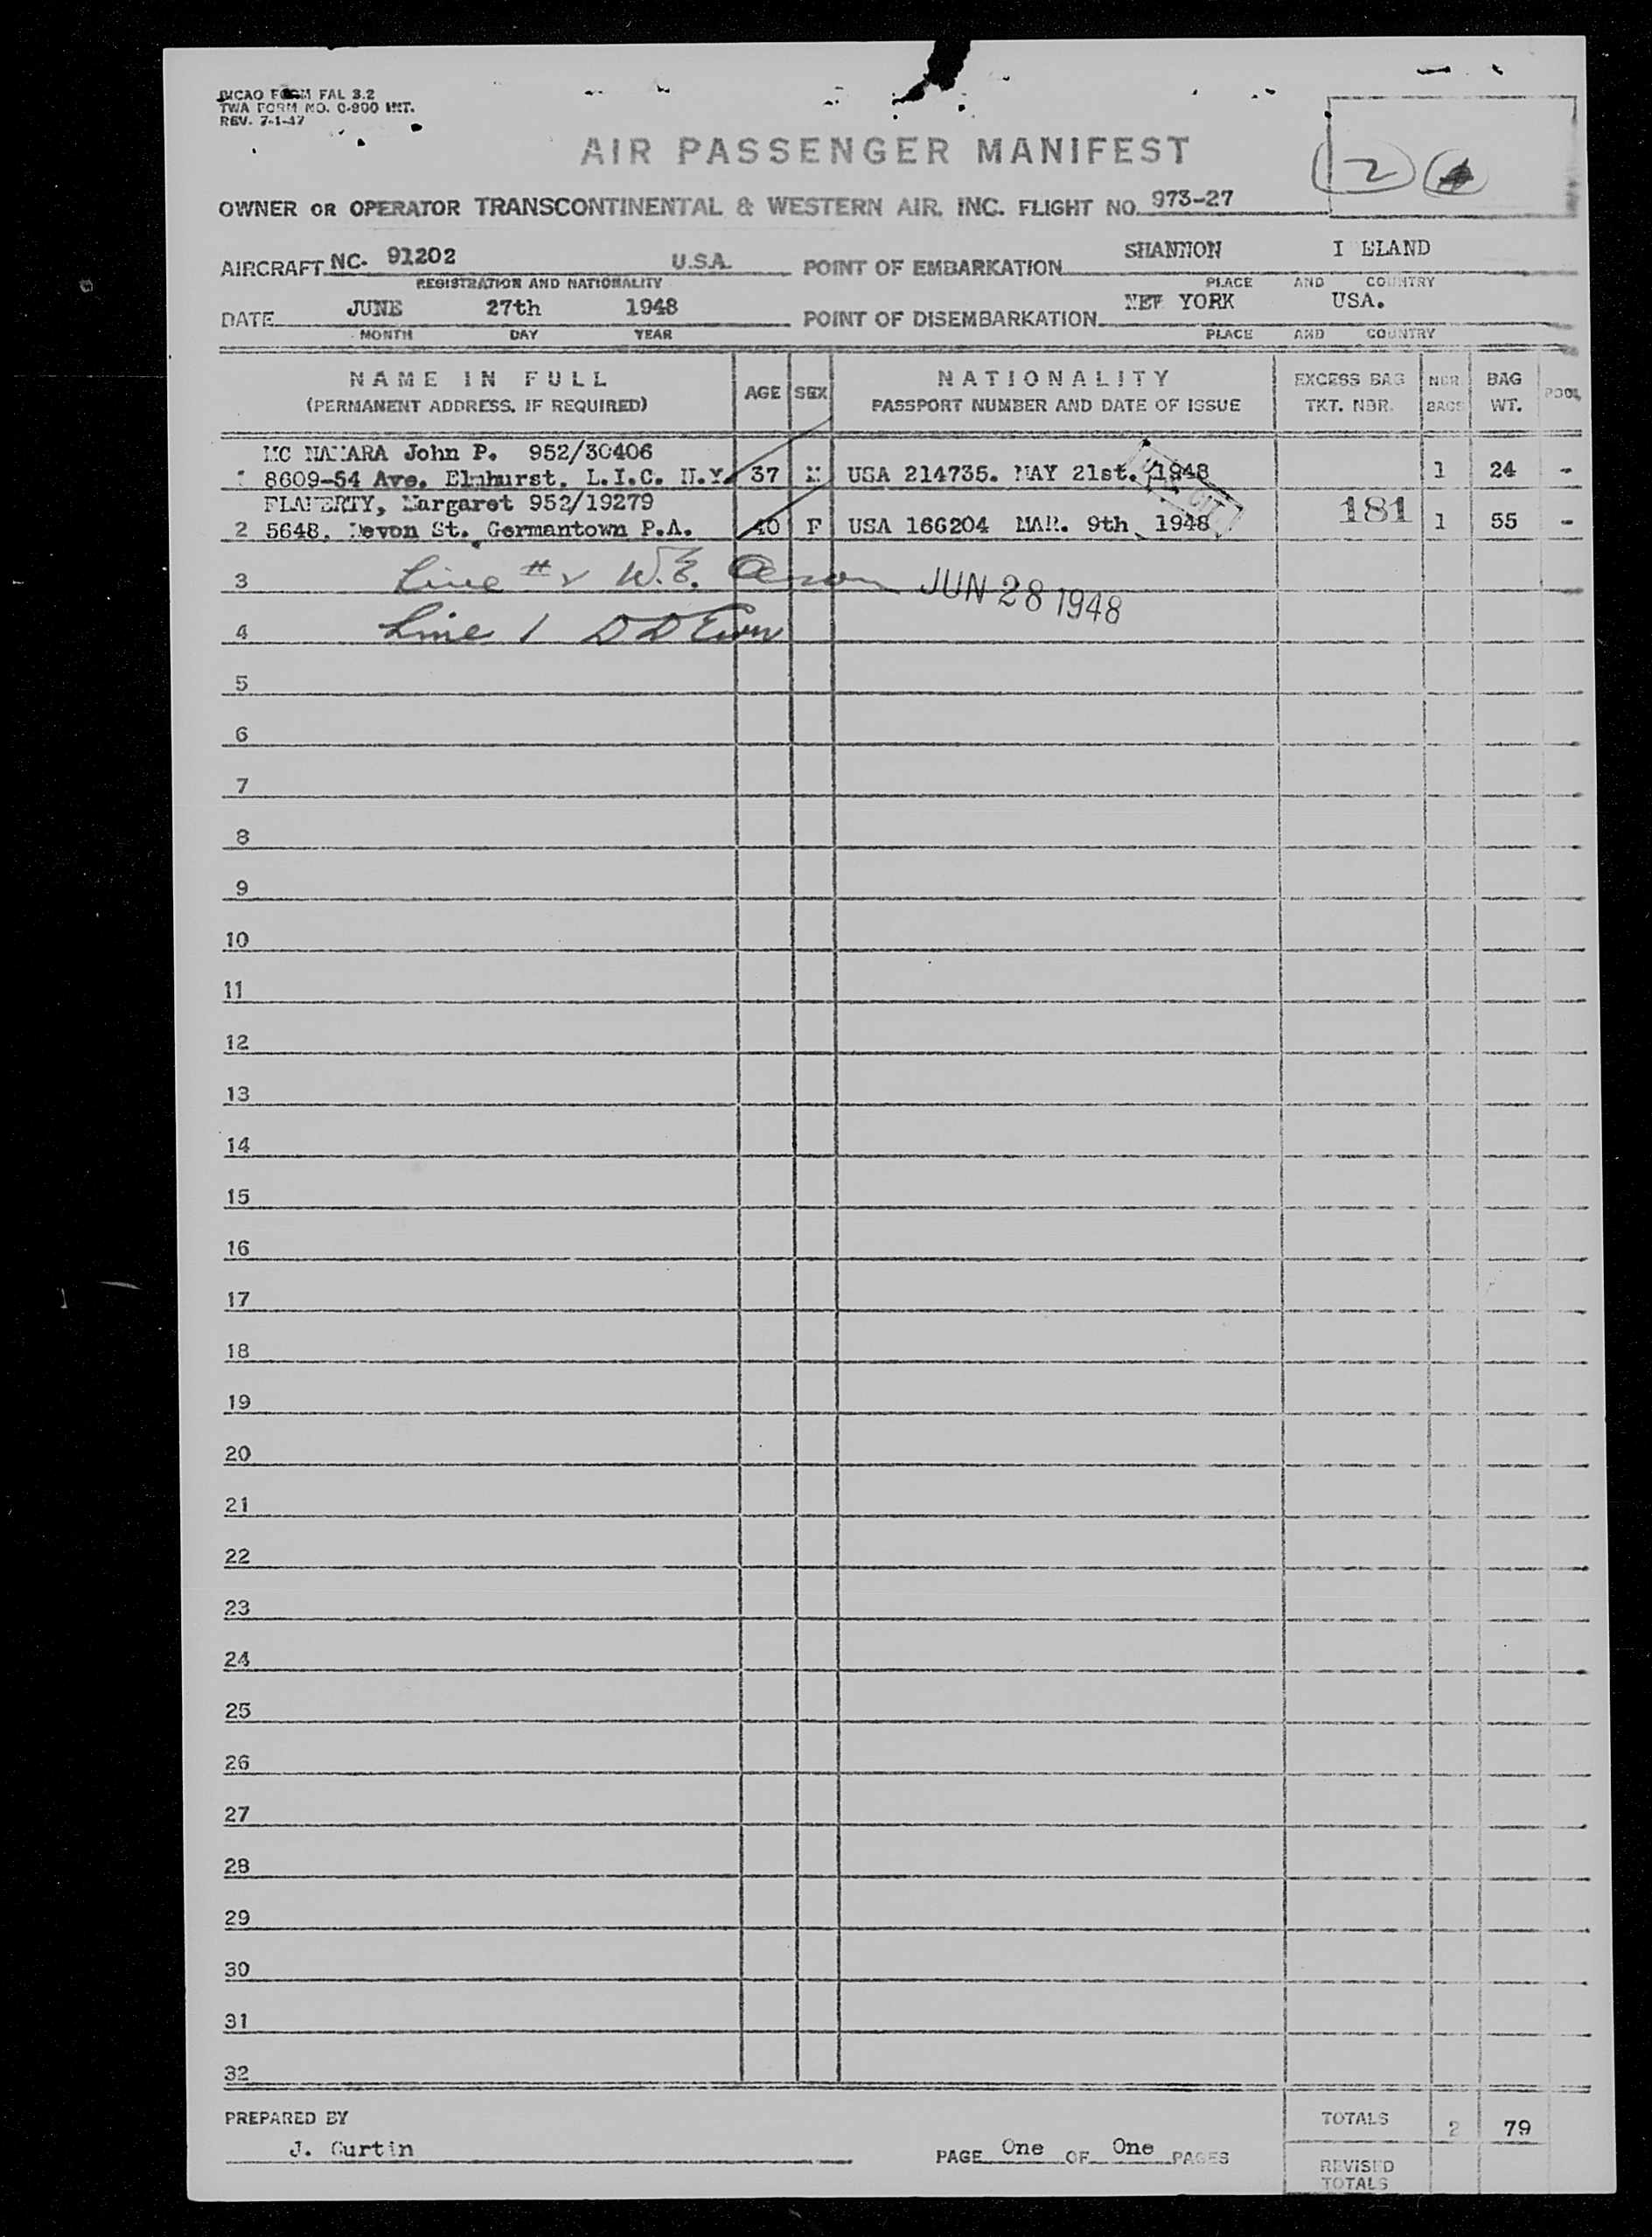 PICAO FORM FAL 3.2
TWA FORM NO. C-900 INT.
REV. 7-1-47
AIR PASSENGER MANIFEST
2
OWNER OR OPERATOR TRANSCONTINENTAL & WESTERN AIR, INC. FLIGHT NO. 973-27
AIRCRAFT NC- 91202 U.S.A. POINT OF EMBARKATION SHANNON I ELAND
REGISTRATION AND NATIONALITY PLACE AND COUNTRY
DATE JUNE 27th 1948 POINT OF DISEMBARKATION NEW YORK USA.
MONTH DAY YEAR PLACE AND COUNTRY
NAME IN FULL AGE SEX NATIONALITY EXCESS BAG NBR BAG POOL
(PERMANENT ADDRESS, IF REQUIRED) PASSPORT NUMBER AND DATE OF ISSUE TKT. NBR. BAGS WT.
MC NAMARA John P. 952/30406
1 8609-54 Ave. Elmhurst. L.I.C. N.Y. 37 M USA 214735. MAY 21st. 1948 1 24 -
FLAHERTY, Margaret 952/19279
2 5648, Devon St. Germantown P.A. 40 F USA 166204 MAR. 9th 1948 181 1 55 -
3 Line #2 W.E. JUN 28 1948
4 Line 1 D D
5
6
7
8
9
10
11
12
13
14
15
16
17
18
19
20
21
22
23
24
25
26
27
28
29
30
31
32
PREPARED BY TOTALS 2 79
J. Curtin PAGE One OF One PAGES
REVISED
TOTALS